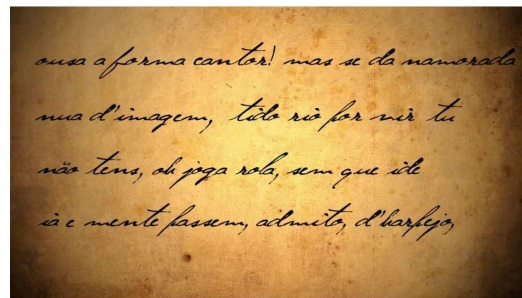 ousa a forma cantor! mas se da namorada
nua d'imagem, tido rio for vir tu
não tens, oh joga rola, sem que ide
ia e mente passem, admito, d'harpejo,